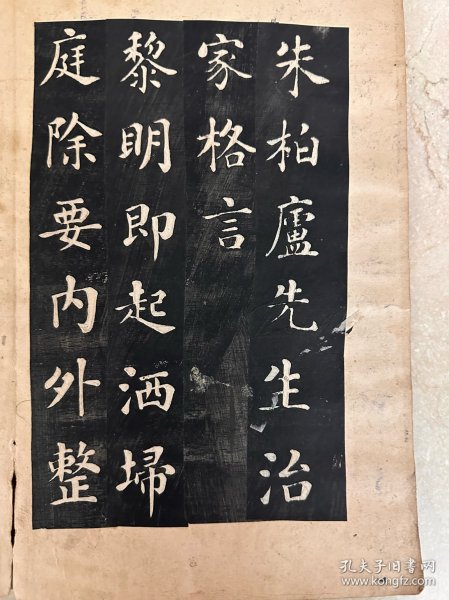 朱柏廬先生治
家格言
黎明即起洒埽
庭除要内外整
孔夫子旧书网
www.kongfz.com